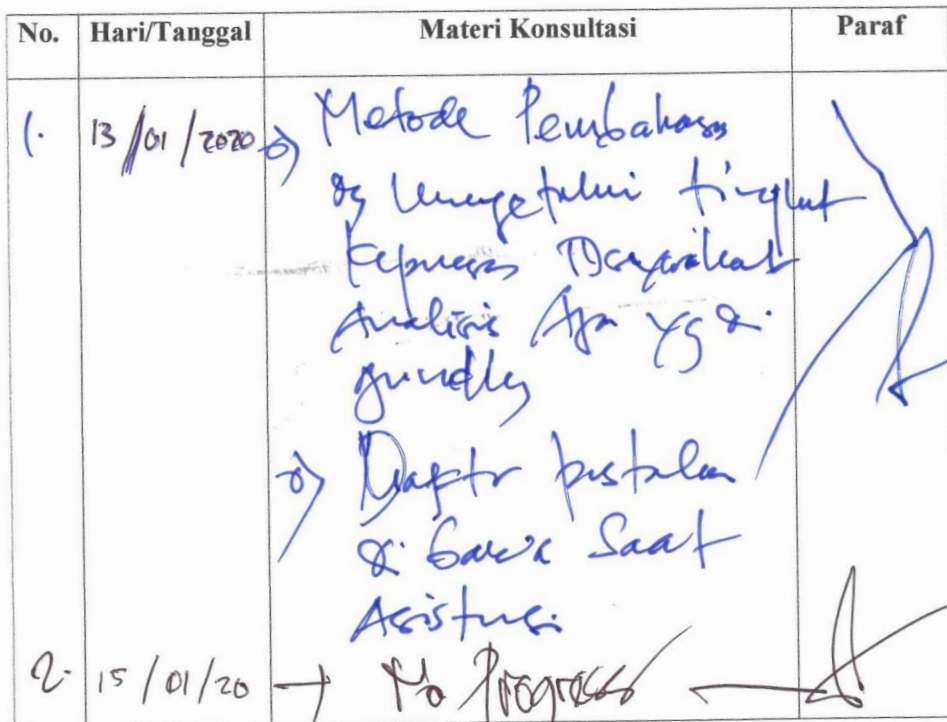 No. Hari/Tanggal Materi Konsultasi Paraf
1. 13/01/2020 Metode Pembahasan
mengetahui tingkat
Kepuasan Masyarakat
Analisis Apa yg di
gunakan
Daftar pustaka
di bawa Saat
Asistensi
2. 15/01/20 → No Progress